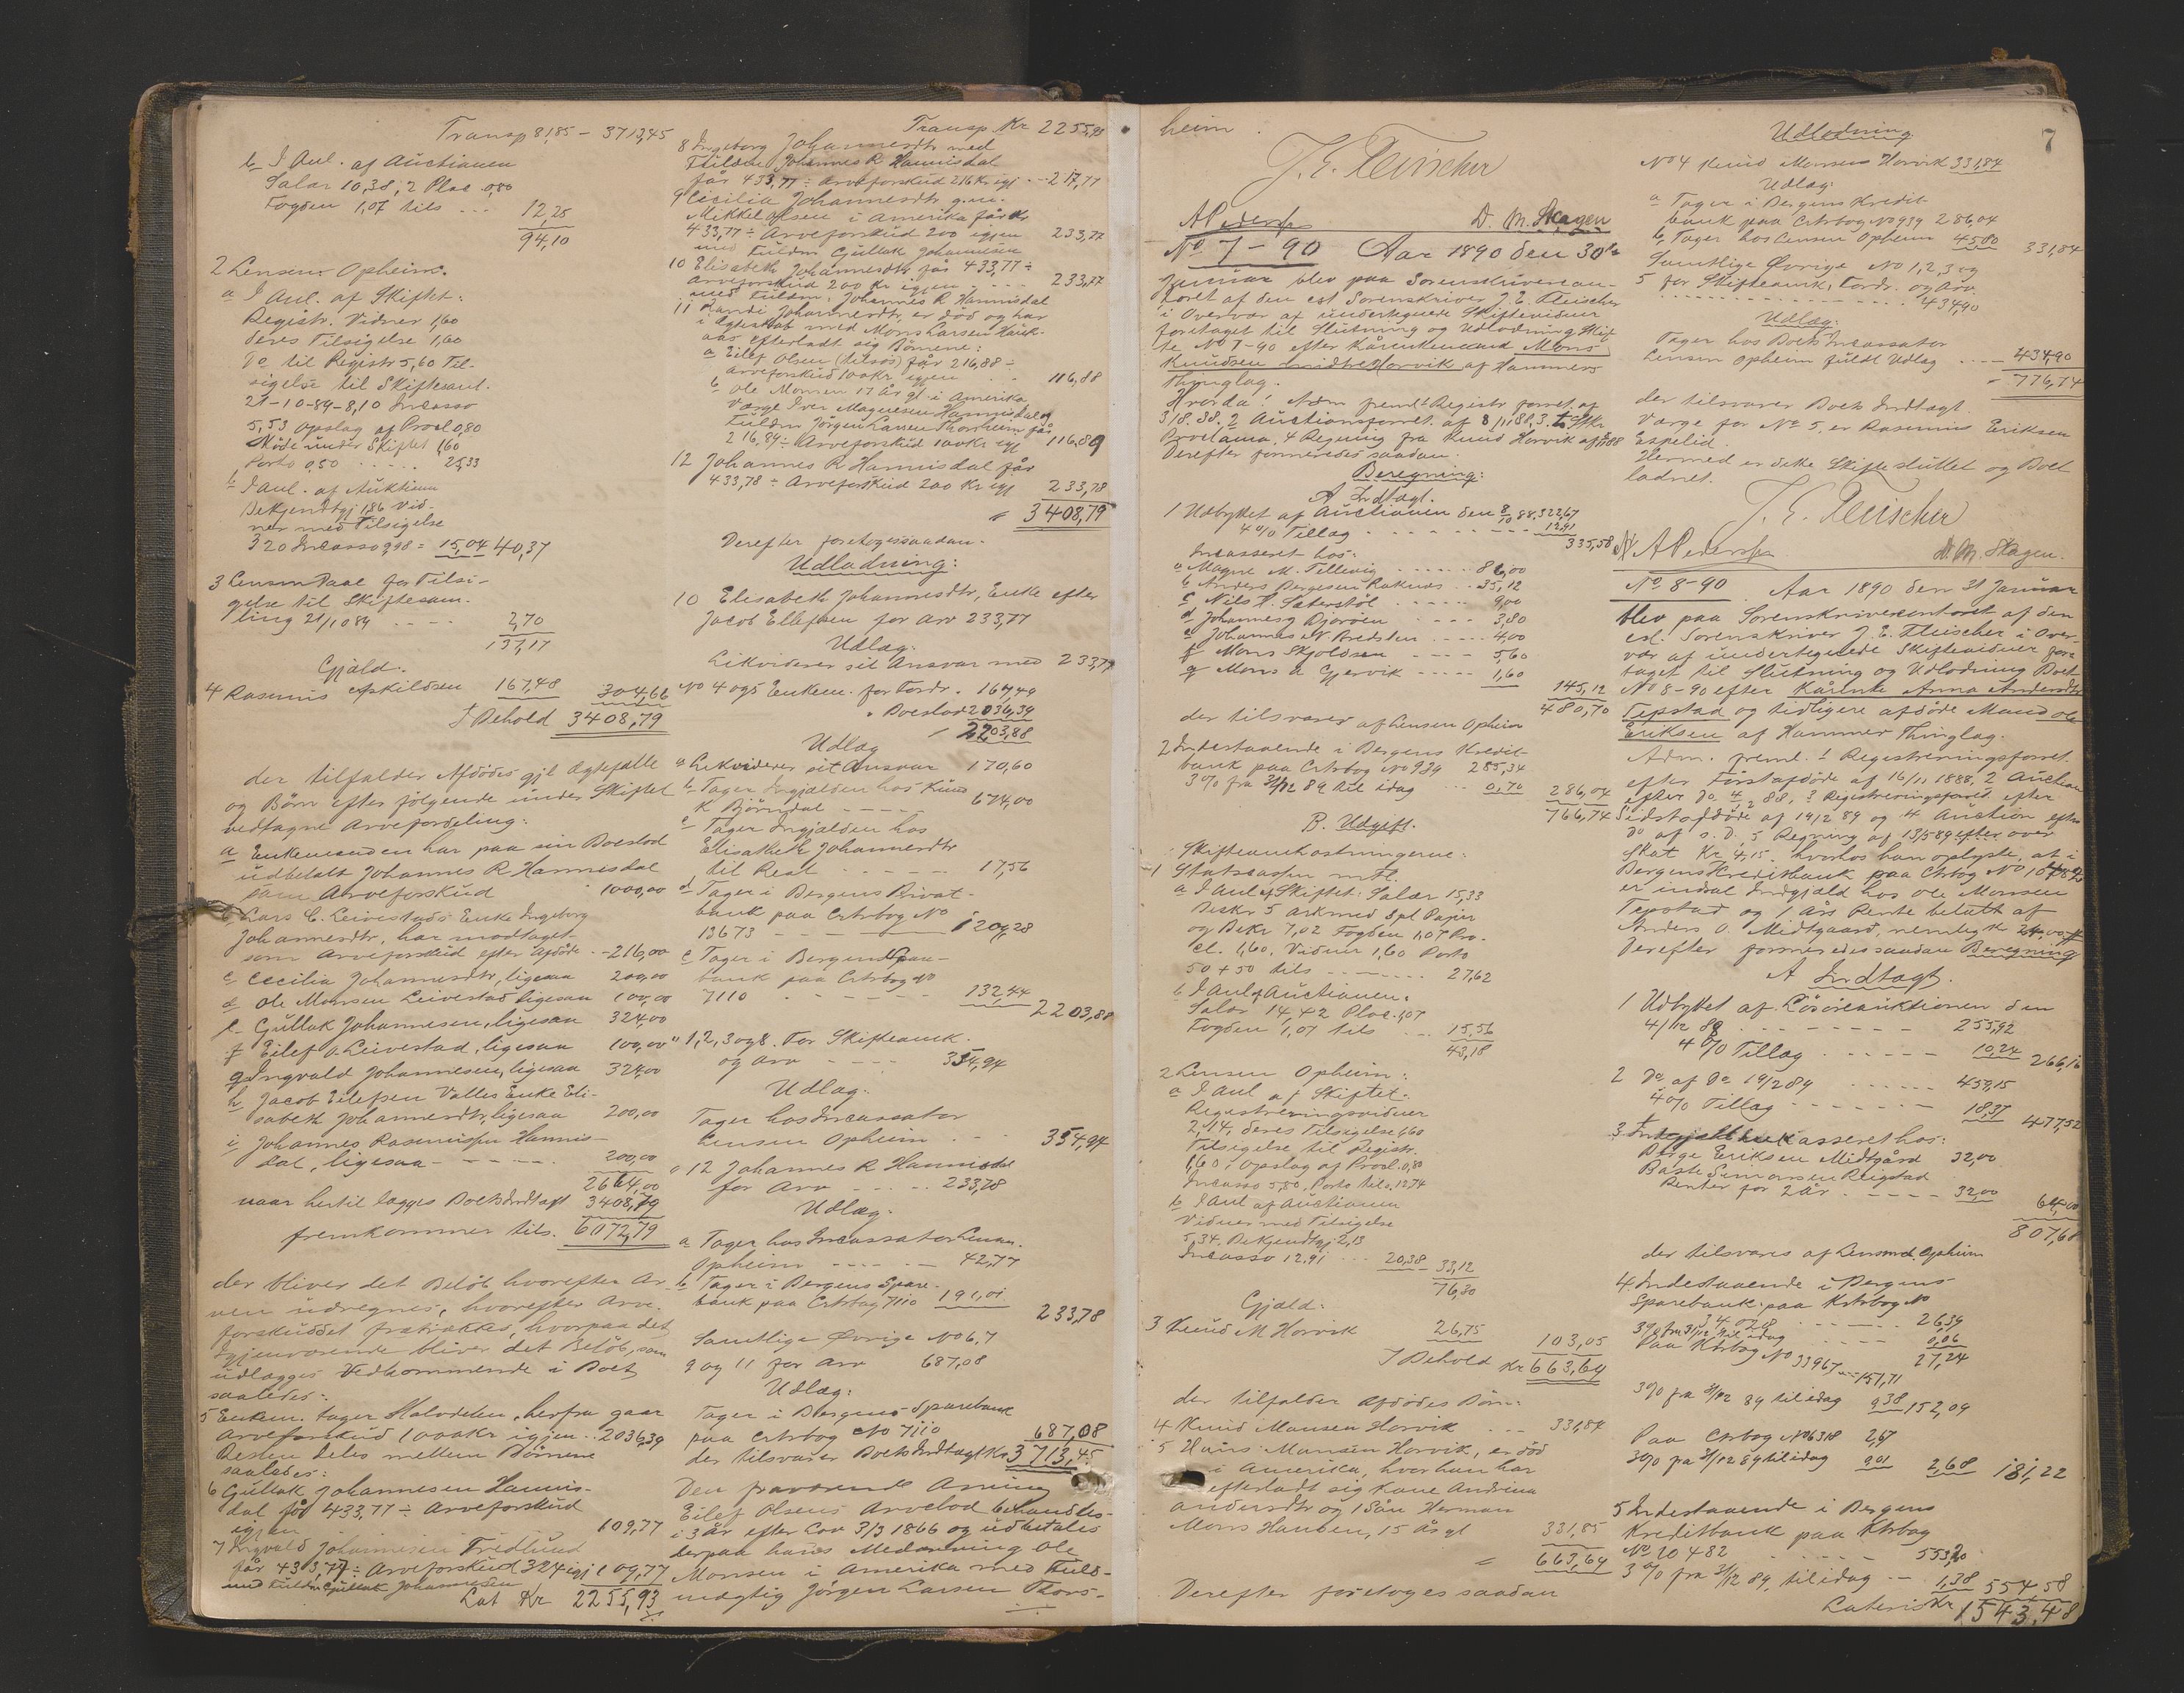 Transp 81,85 - 3713,45
b I Anl. af Auctionen
Salar 10,38, 2 Plac 0,80
Fogden 1,07 tils ... 12,25
94,10
2 Lensm Opheim.
a I Anl. af Skiftet:
Registr. Vidner 1,60
deres Tilsigelse 1,60
Do til Registr 5,60 Til-
sigelse til Skiftesaml.
21-10-89 - 8,10 Incasso
5,53 Opslag af Procl 0,80
Møde under Skiftet 1,60
Porto 0,50 ..... 25,33
b I anl. af Auktionen
Bekjendtgj 1,86 Vid-
ner med Tilsigelse
3,20 Incasso 9,98 = 15,04 40,37
3 Lensm Daae for Tilsi-
gelse til Skiftesam-
ling 21/10 89 .... 2,70
137,17
Gjæld.
4 Rasmus Askildsen 167,48 304,66
I Behold 3408,79
der tilfalder Afdødes gjl Ægtefælle
og Børn efter følgende under Skiftet
vedtagne Arvefordeling:
a Enkemanden har paa sin Boeslod
udbetalt Johannes R Hannisdal
som Arveforskud 1000,00
b Lars C. Leivestads Enke Ingeborg
Johannesdtr, har modtaget
som Arveforskud efter Afdøde - 216,00
c Cecilia Johannesdtr, ligesaa 200,00
d Ole Monsen Leivestad ligesaa 100,00
e Gullak Johannesen, ligesaa 324,00
f Eilef O. Leivestad, ligesaa 100,00
g Ingvald Johannesen, ligesaa 324,00
h Jacob Eilefsen Valles Enke Eli-
sabeth Johannesdtr, ligesaa 200,00
i Johannes Rasmussen Hannis-
dal, ligesaa - - - - - 200,00
2664,00
naar hertil lægges Boets Indtægt 3408,79
fremkommer tils. 6072,79
der bliver det Beløb hvorefter Ar-
ven udregnes, hvorefter Arve-
forskuddet fratrækkes, hvorpaa det
Igjenværende bliver det Beløb, som
udlægges Vedkommende i Boet
saaledes:
5 Enkem. tager Halvdelen, herfra gaar
Arveforskud 1000 Kr igjen .. 2036,39
Resten deles mellem Børnene
saaledes:
6 Gullak Johannesen Hannis-
dal får 433,77 ÷ Arveforskud
igjen 109,77
7 Ingvald Johannesen Fredlund
får 433,77 ÷ Arveforskud 324 igj 109,77
med Fuldm Gullak Johannesen
Lat Kr 2255,93
Transp. Kr 2255,93
8 Ingeborg Johannesdtr med
Fuldm Johannes R Hannisdal
får 433,77 ÷ Arveforskud 216 Kr igj - 217,77
9 Cecilia Johannesdtr g.m.
Mikkel Olsen i Amerika får Kr
433,77 ÷ Arveforskud 200 igjen 233,77
med Fuldm Gjullak Johannesen
10 Elisabeth Johannesdtr får 433,77 ÷
Arveforskud 200 Kr igjen - - - 233,77
med Fuldm: Johannes R Hannisdal
11 Randi Johannesdtr, er død og har
i Ægteskab med Mons Larsen Hauk-
aas efterladt sig Børnene:
a Eilef Olsen (tilsøs) får 216,88 ÷
Arveforskud 100 Kr igjen . . 116,88
b Ole Monsen 17 år gl. i Amerika
Værge Iver Magnesen Hannisdal og
Fuldm Jørgen Larsen Thorsheim får
216,89 ÷ Arveforskud 100 Kr igj 116,89
12 Johannes R Hannisdal får
433,78 ÷ Arveforskud 200 Kr igj 233,78
3408,79
Derefter foretoges saadan.
Udlodning:
10 Elisabeth Johannesdtr, Enke efter
Jacob Ellefsen for Arv 233,77
Udlæg:
Likviderer sit Ansvar med 233,77
No 4 og 5 Enkem. for Fordr. 167,49
" Boeslod 2036,39
2203,88
Udlæg
a Likviderer sit Ansvar 170,60
b Tager Ingjælden hos Knud
K Bjørndal - - - - 674,00
c Tager Ingjælden hos
Elisabeth Johannesdtr
til Rest - - - - - 17,56
d Tager i Bergens Privat-
bank paa Ctrbog No
13673 - - - 1209,28
e Tager i Bergens Spare-
bank paa Ctrbog No
7110 . - - - - 132,44
2203,88
" 1, 2, 3 og 8. For Skifteomk.
og arv - - - - 354,94
Udlæg.
Tager hos Incassator
Lensm Opheim . . - 354,94
" 12 Johannes R Hannisdal
for Arv - - - - 233,78
Udlæg.
a Tager hos Incassator Lensm.
Opheim - - - - - 42,77
b Tager i Bergens Spare-
bank paa Ctrbog 7110 191,01
233,78
Samtlige Øvrige No 6, 7
9 og 11 for Arv 687,08
Udlæg:
Tager i Bergens Sparebank
paa Ctrbog No 7110 687,08
der tilsvarer Boets Indtægt Kr 3713,45
Den fraværende Arving
Eilef Olsens Arvelod behandles
i 3 år efter Lov 3/3 1866 og udbetales
derpaa hans Medarving Ole
Monsen i Amerika med Fuld-
mægtig Jørgen Larsen Thors-
heim.
J. E. Fleischer
A Pedersen D. M. Skagen
No 7-90 Aar 1890 den 30te
Januar blev paa Sorenskriverkon-
toret af den cst Sorenskriver J. E. Fleischer
i Overvær af undertegnede Skiftevidner
foretaget til Slutning og Udlodning Skif
te No 7-90 efter Kårenkemand Mons
Knudsen Midtre Horvik af Hammers
Thinglag.
Hvorda: Adm freml 1 Registr forret. af
3/8. 88, 2 Auctionsforret. af 8/11 88, 3
Proclama, 4 Regning fra Knud Horvik af 88
Derefter formeredes saadan.
Beregning:
A Indtægt.
1 Udbyttet af Auctionen den 8/10 88, 322,67
4 % Tillæg . - - - - - 12,91
335,58
Incasseret hos:
a Magne M. Tellevig - - - - - 86,00
b Anders Bergesen Raknes .. 35,12
c Nils H. Sæterstøl - - - - - 9,00
d Johannes Djorøen - - - - 3,80
e Johannes N Bredsten - - - - 4,00
f Mons Skjoldsen - - - - 5,60
g Mons A Gjervik - - - - - 1,60
145,12
480,70
der tilsvares af Lensm Opheim
2 Indestaaende i Bergens Kredit-
bank paa Ctrbog No 939 285,34
3 % fra 31/12 89 til idag ... 0,70
286,04
766,74
B. Udgift.
Skifteomkostningerne:
1 Statscassen mfl.
a I Anl af Skiftet: Salær 15,33
Beskr 5 Ark med Spl Papir
og Bekr 7,02 Fogden 1,07 Pro-
cl. 1,60. Vidner 1,60 Porto
50 + 50 tils - - - - - - 27,62
b I Anl af Auctionen:
Salær 14,42 Plac. 1,07
Fogden 1,07 tils .... 15,56
43,18
2 Lensm Opheim:
a I Anl af Skiftet:
Registreringsvidner
2,14, deres Tilsigelse 1,60
Tilsigelse til Registr.
1,60, Opslag af Procl. 0,80
Incasso 5,80, Porto tils. 12,74
b I Anl af Auctionen
Vidner med Tilsigelse
5,34, Bekjendtgj 2,13
Incasso 12,91 ... 20,38 33,12
76,30
Gjæld:
3 Knud M Horvik 26,75 103,05
I Behold Kr 663,69
der tilfalder Afdødes Børn:
4 Knud Monsen Horvik ... 331,84
5 Hans Monsen Horvik, er død
i Amerika, hvor han har
efterladt sig Kone Andrina
Andersdtr og 1 Søn Herman
Mons Hansen, 15 år gl 331,85
663,69
Derefter foretoges saadan
7
Udlodning
No 4 Knud Monsen Horvik 331,84
Udlæg
a Tager i Bergens Kredit-
bank paa Ctrbog No 939 286,04
b, Tager hos Lensm Opheim 45,80 331,84
Samtlige Øvrige No 1, 2, 3 og
5 for Skifteomk, Fordr. og Arv.
434,90
Udlæg:
Tager hos Boets Incassator
Lensm Opheim fuldt Udlæg . . . . 434,90
766,74
der tilsvarer Boets Indtægt.
Værge for No 5, er Rasmus Eriksen
Espelid.
Hermed er dette Skifte sluttet og Boet
lodnet.
J. E. Fleischer
N A Pedersen D. M. Skagen.
No 8-90 Aar 1890 den 31 Januar
blev paa Sorenskrivercontoret af den
cst. Sorenskriver J. E. Fleischer i Over-
vær af undertegnede Skiftevidner fore-
taget til Slutning og Udlodning Boet
No 8-90 efter Kårenke Anna Andersdtr
Tepstad og tidligere afdøde Mand Ole
Eriksen af Hammer Thinglag.
Adm. freml. 1 Registreringsforret.
efter Førstafdøde af 16/11 1888, 2 Auction
efter do. 4/12 88, 3 Registreringsforret. efter
Sidstafdøde af 19/2 89 og 4 Auction efter
do af s. D. 5 Regning af 13/5 89 efter over
Skat Kr 4,15. hvorhos han oplyste, at i
Bergens Kreditbank paa Ctrbog No
er indsat Indgjæld hos Ole Monsen
Tepstad og 1 Års Rente betalt af
Anders O. Midtgaard, nemlig Kr
Derefter formeredes saadan Beregning
A Indtægt.
1 Udbyttet af Løsøreauktionen den
4/12 88 . - - - - - - 255,92
4 % Tillæg . - - - - 10,24 266,16
2 do af do 19/2 89 . . . . . . 459,15
4 % Tillæg - - - - - - 18,37 477,52
3 Incasseret hos:
Børge Eriksen Midtgård 32,00
Baste Simonsen Reigstad
Renter for 2 år . - - - - 32,00
64,00
807,68
der tilsvares af Lensmd. Opheim
4 Indestaaende i Bergens
Sparebank paa Ktrbog No
34028 26,39
3 % fra 31/12 til idag - - - - 0,06
Paa Ktrbog No 33967 - - 151,71 27,24
3 % fra 31/12 89 til idag 0,38 152,09
Paa Ctrbog No 6318 2,67
3 % fra 31/12 89 til idag 0,01 2,68 181,22
5 Indestaaende i Bergens
Kreditbank paa Ktrbog
No 10482 . - - - - - 553,20
3 % fra 31/12 89, til idag - - 1,38 554,58
Lateris Kr 1543,48